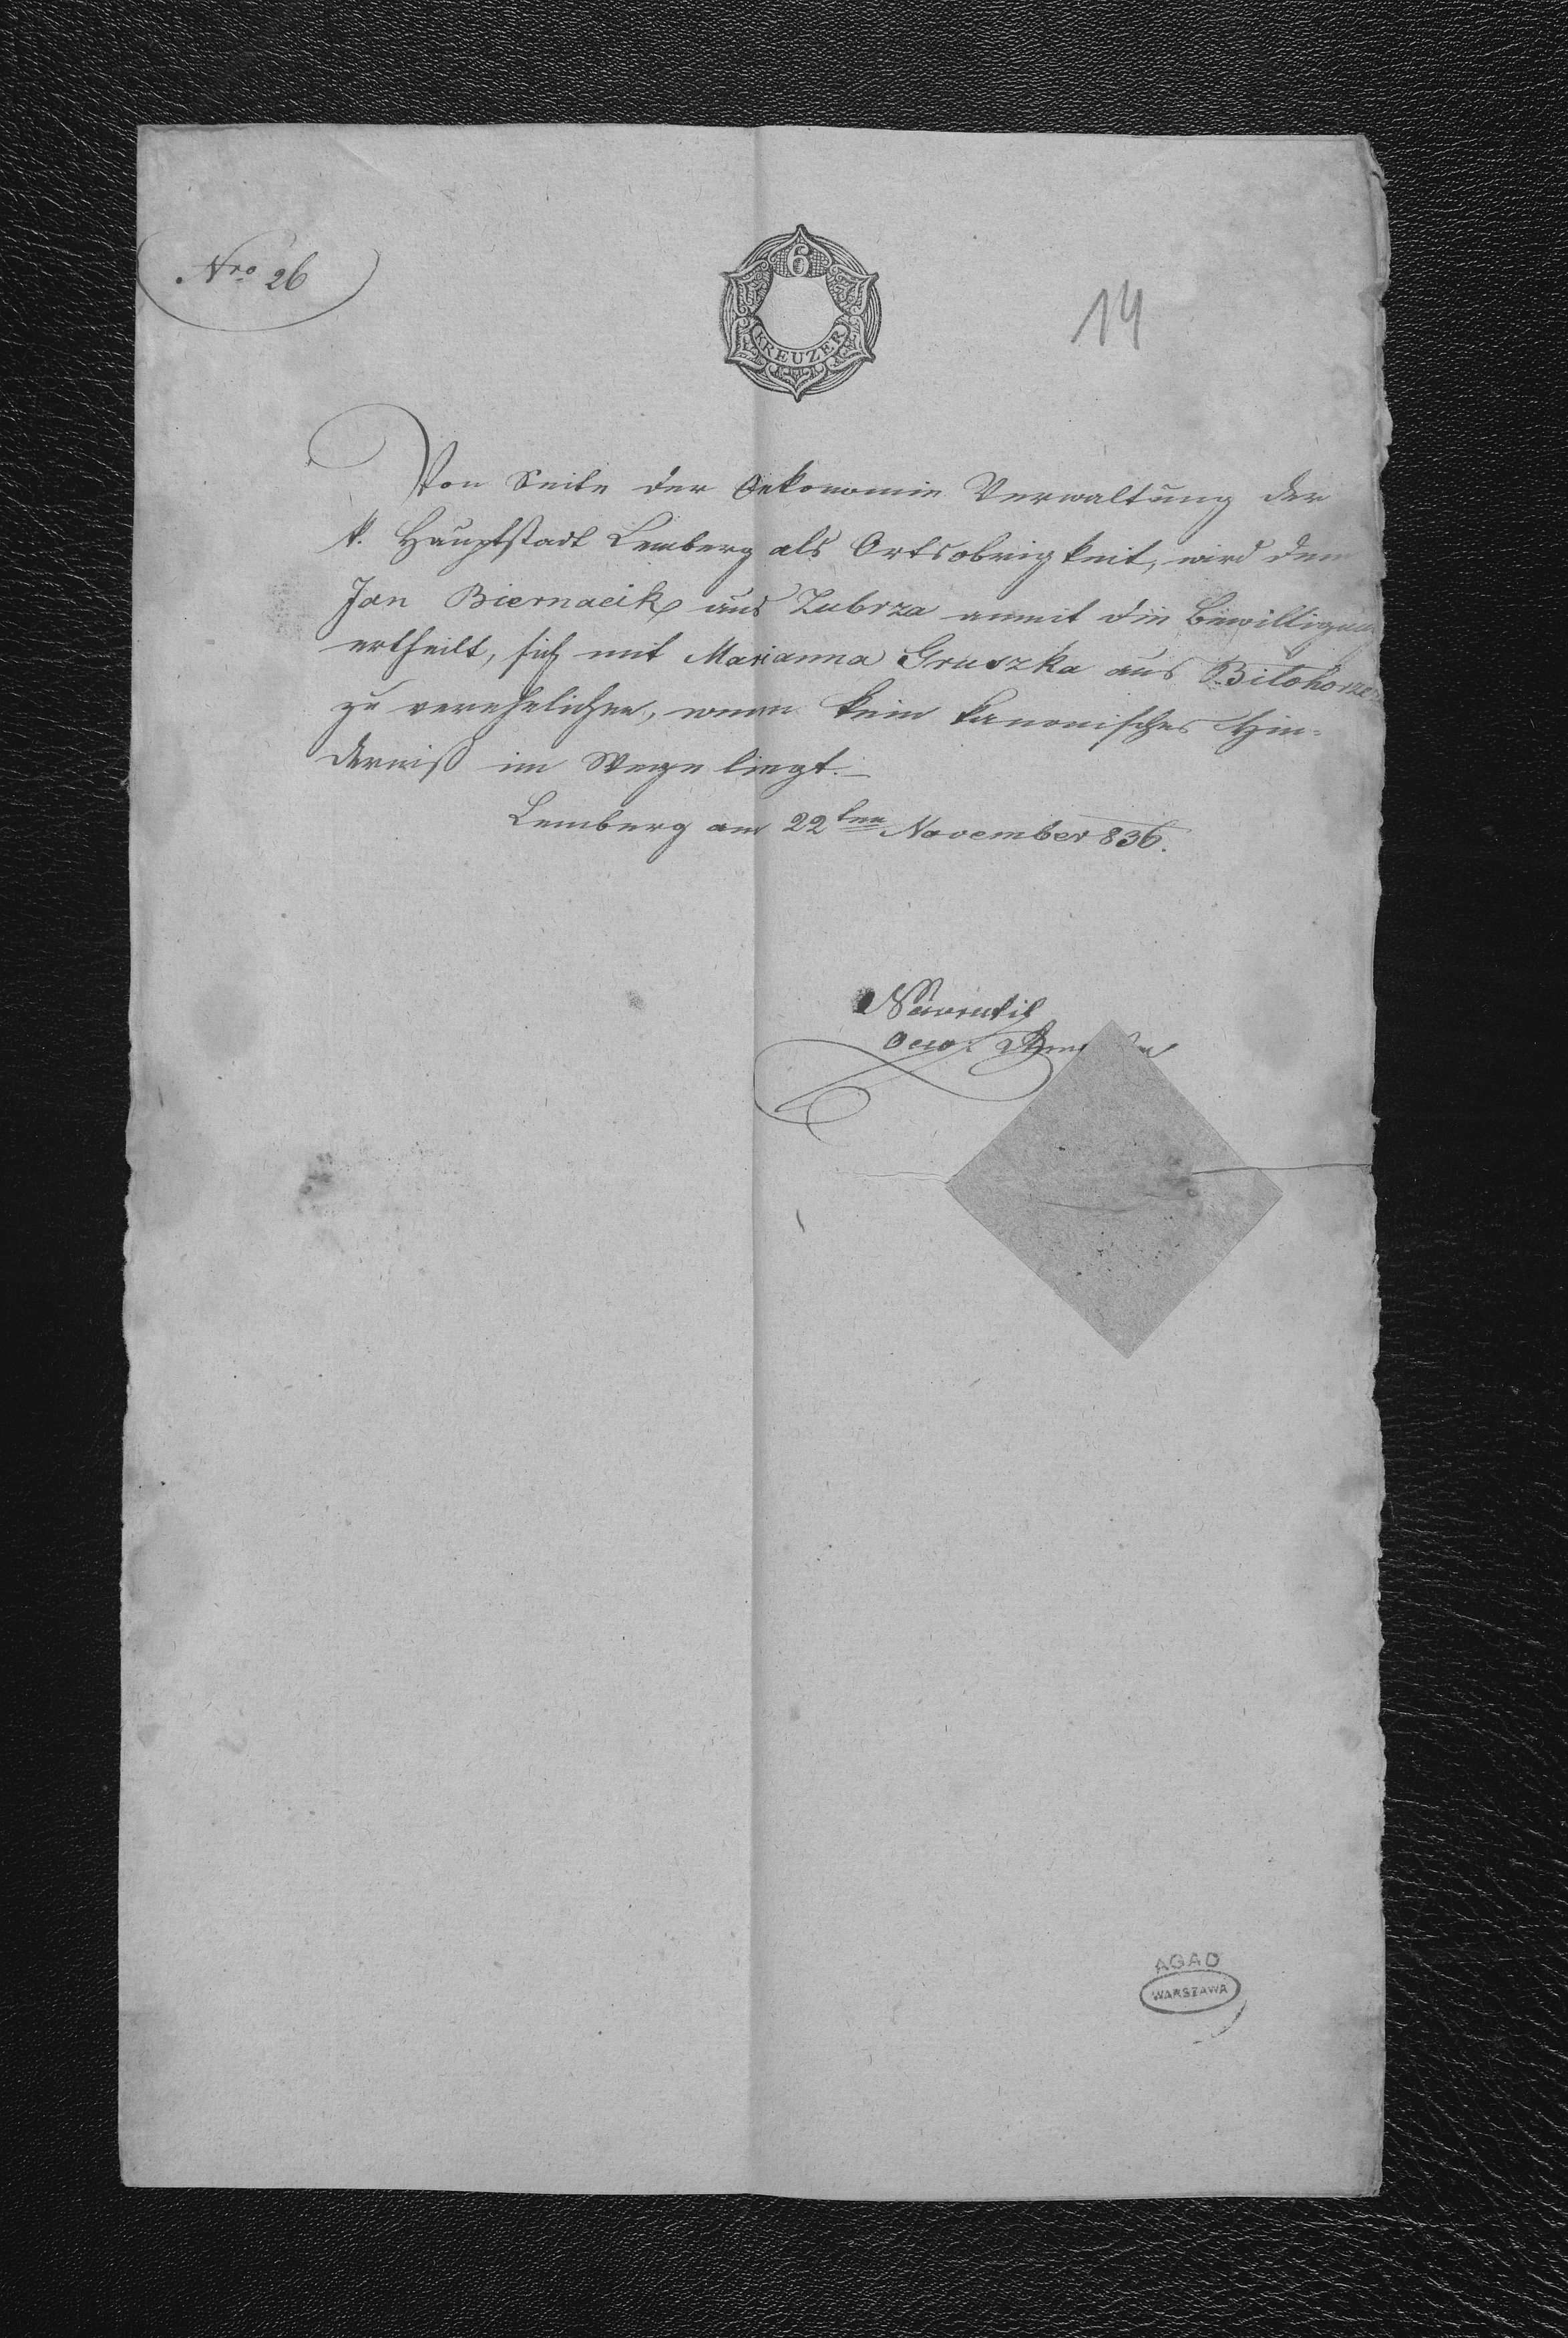 Nro 26
6
KREUZER
14
Von Seite der Oekonomie Verwaltung der
k. Hauptstadt Lemberg als Ortsobrigkeit, wird dem
Jan Biernacik aus Zubrza anmit die Bewilligung
ertheilt, sich mit Marianna Gruszka aus Bilohorze
zu verehelichen, wenn kein kanonisches Hin-
derniß im Wege liegt.
Lemberg am 22ten November 836.
AGAD
WARSZAWA